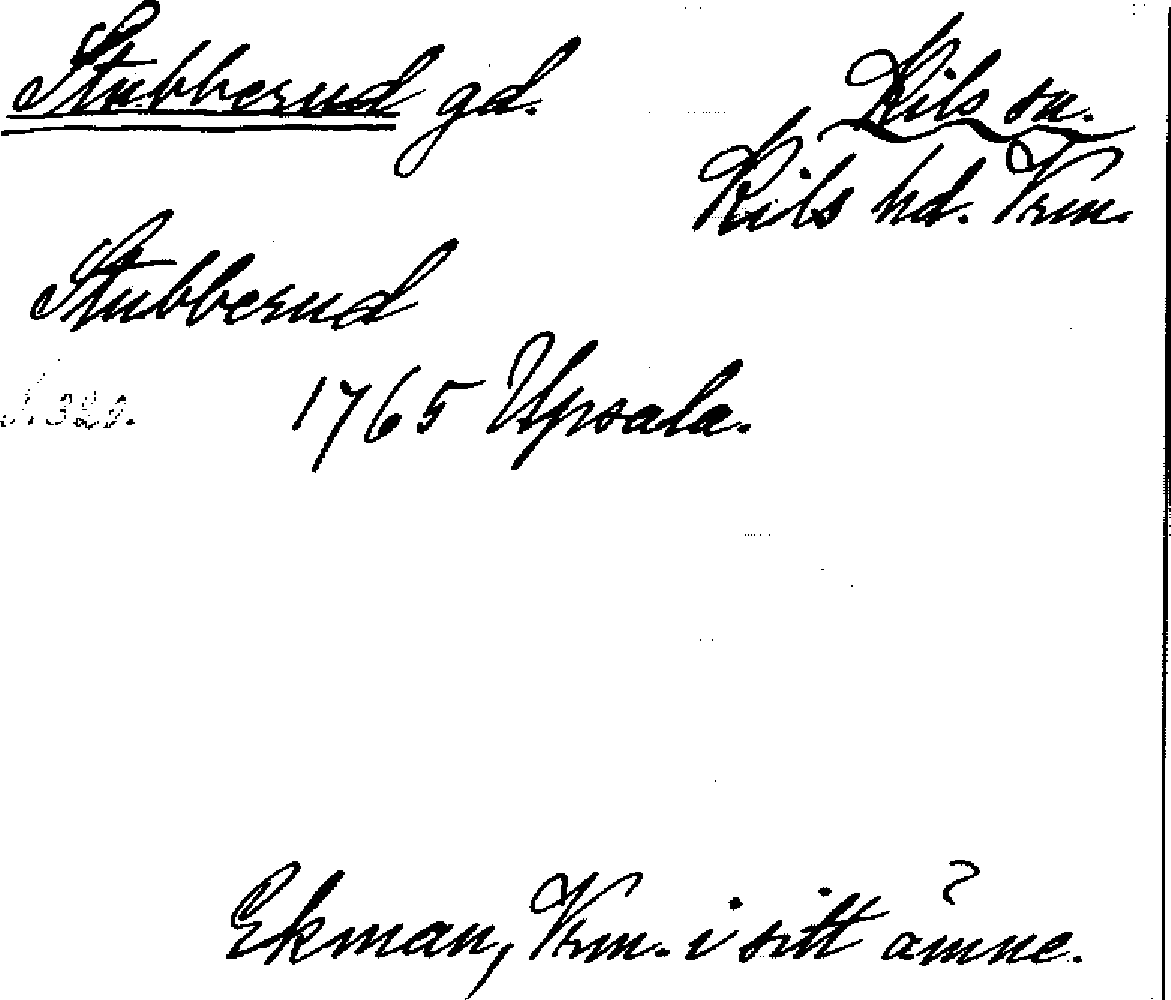 Stubberud gd.
Kils sn.
Kils hd. Vrm.
Stubberud
1765 Upsala.
s. 320.
Ekman, Vrm. i sitt ämne.